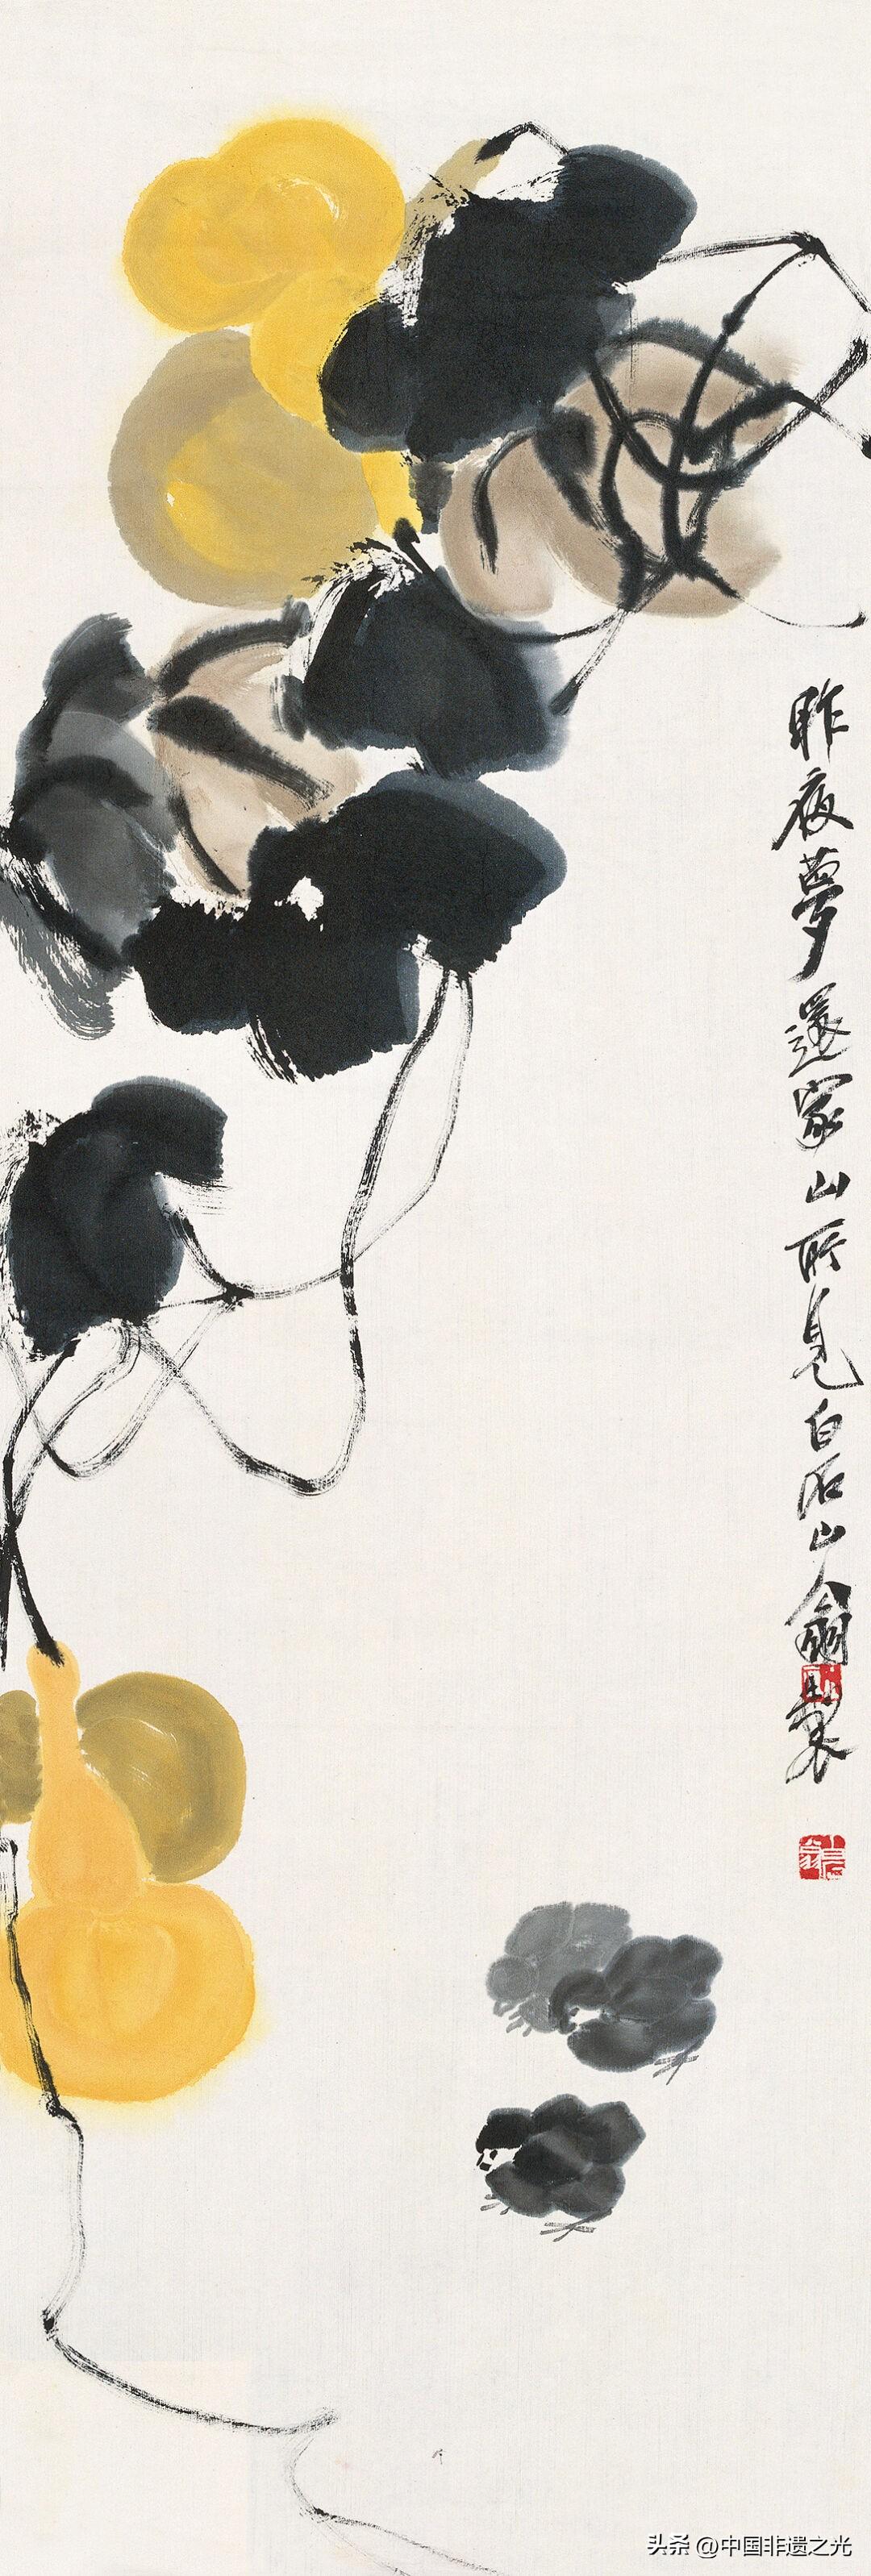 昨夜夢還家山所見白石山翁製
头条 @中国非遗之光